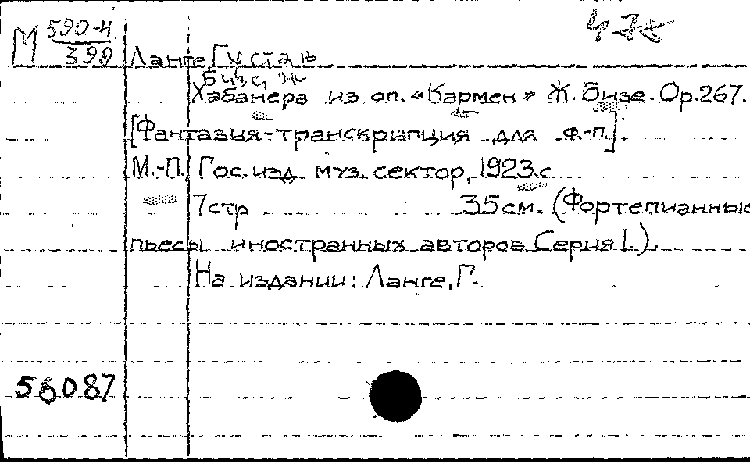 М 590-4/399
Ланге, Густав
Бизе, Ж
Хабанера из оп. «Кармен» Ж. Бизе. Ор. 267.
[Фантазия-транскрипция для ф-п].
М.-П. Гос. изд. муз. сектор, 1923.с
7 стр 35 см. (Фортепианные
пьесы иностранных авторов Серия I.).
На издании: Ланге, Г.
55087